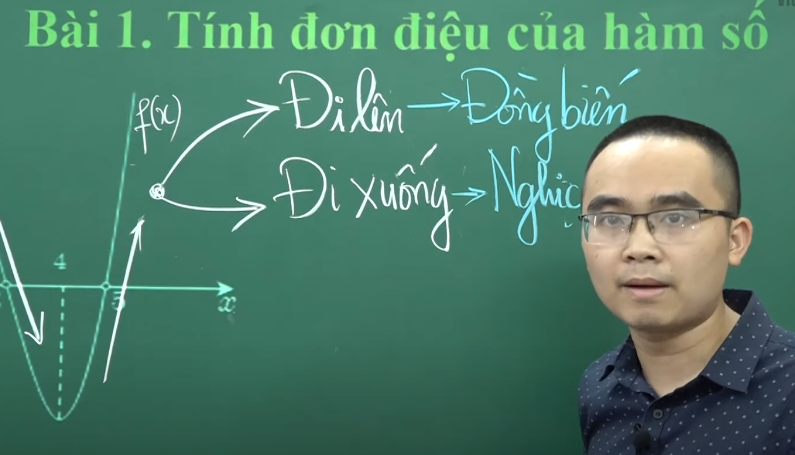 Bài 1. Tính đơn điệu của hàm số
f(x)
Đi lên → Đồng biến
Đi xuống → Nghịc
4
5
x